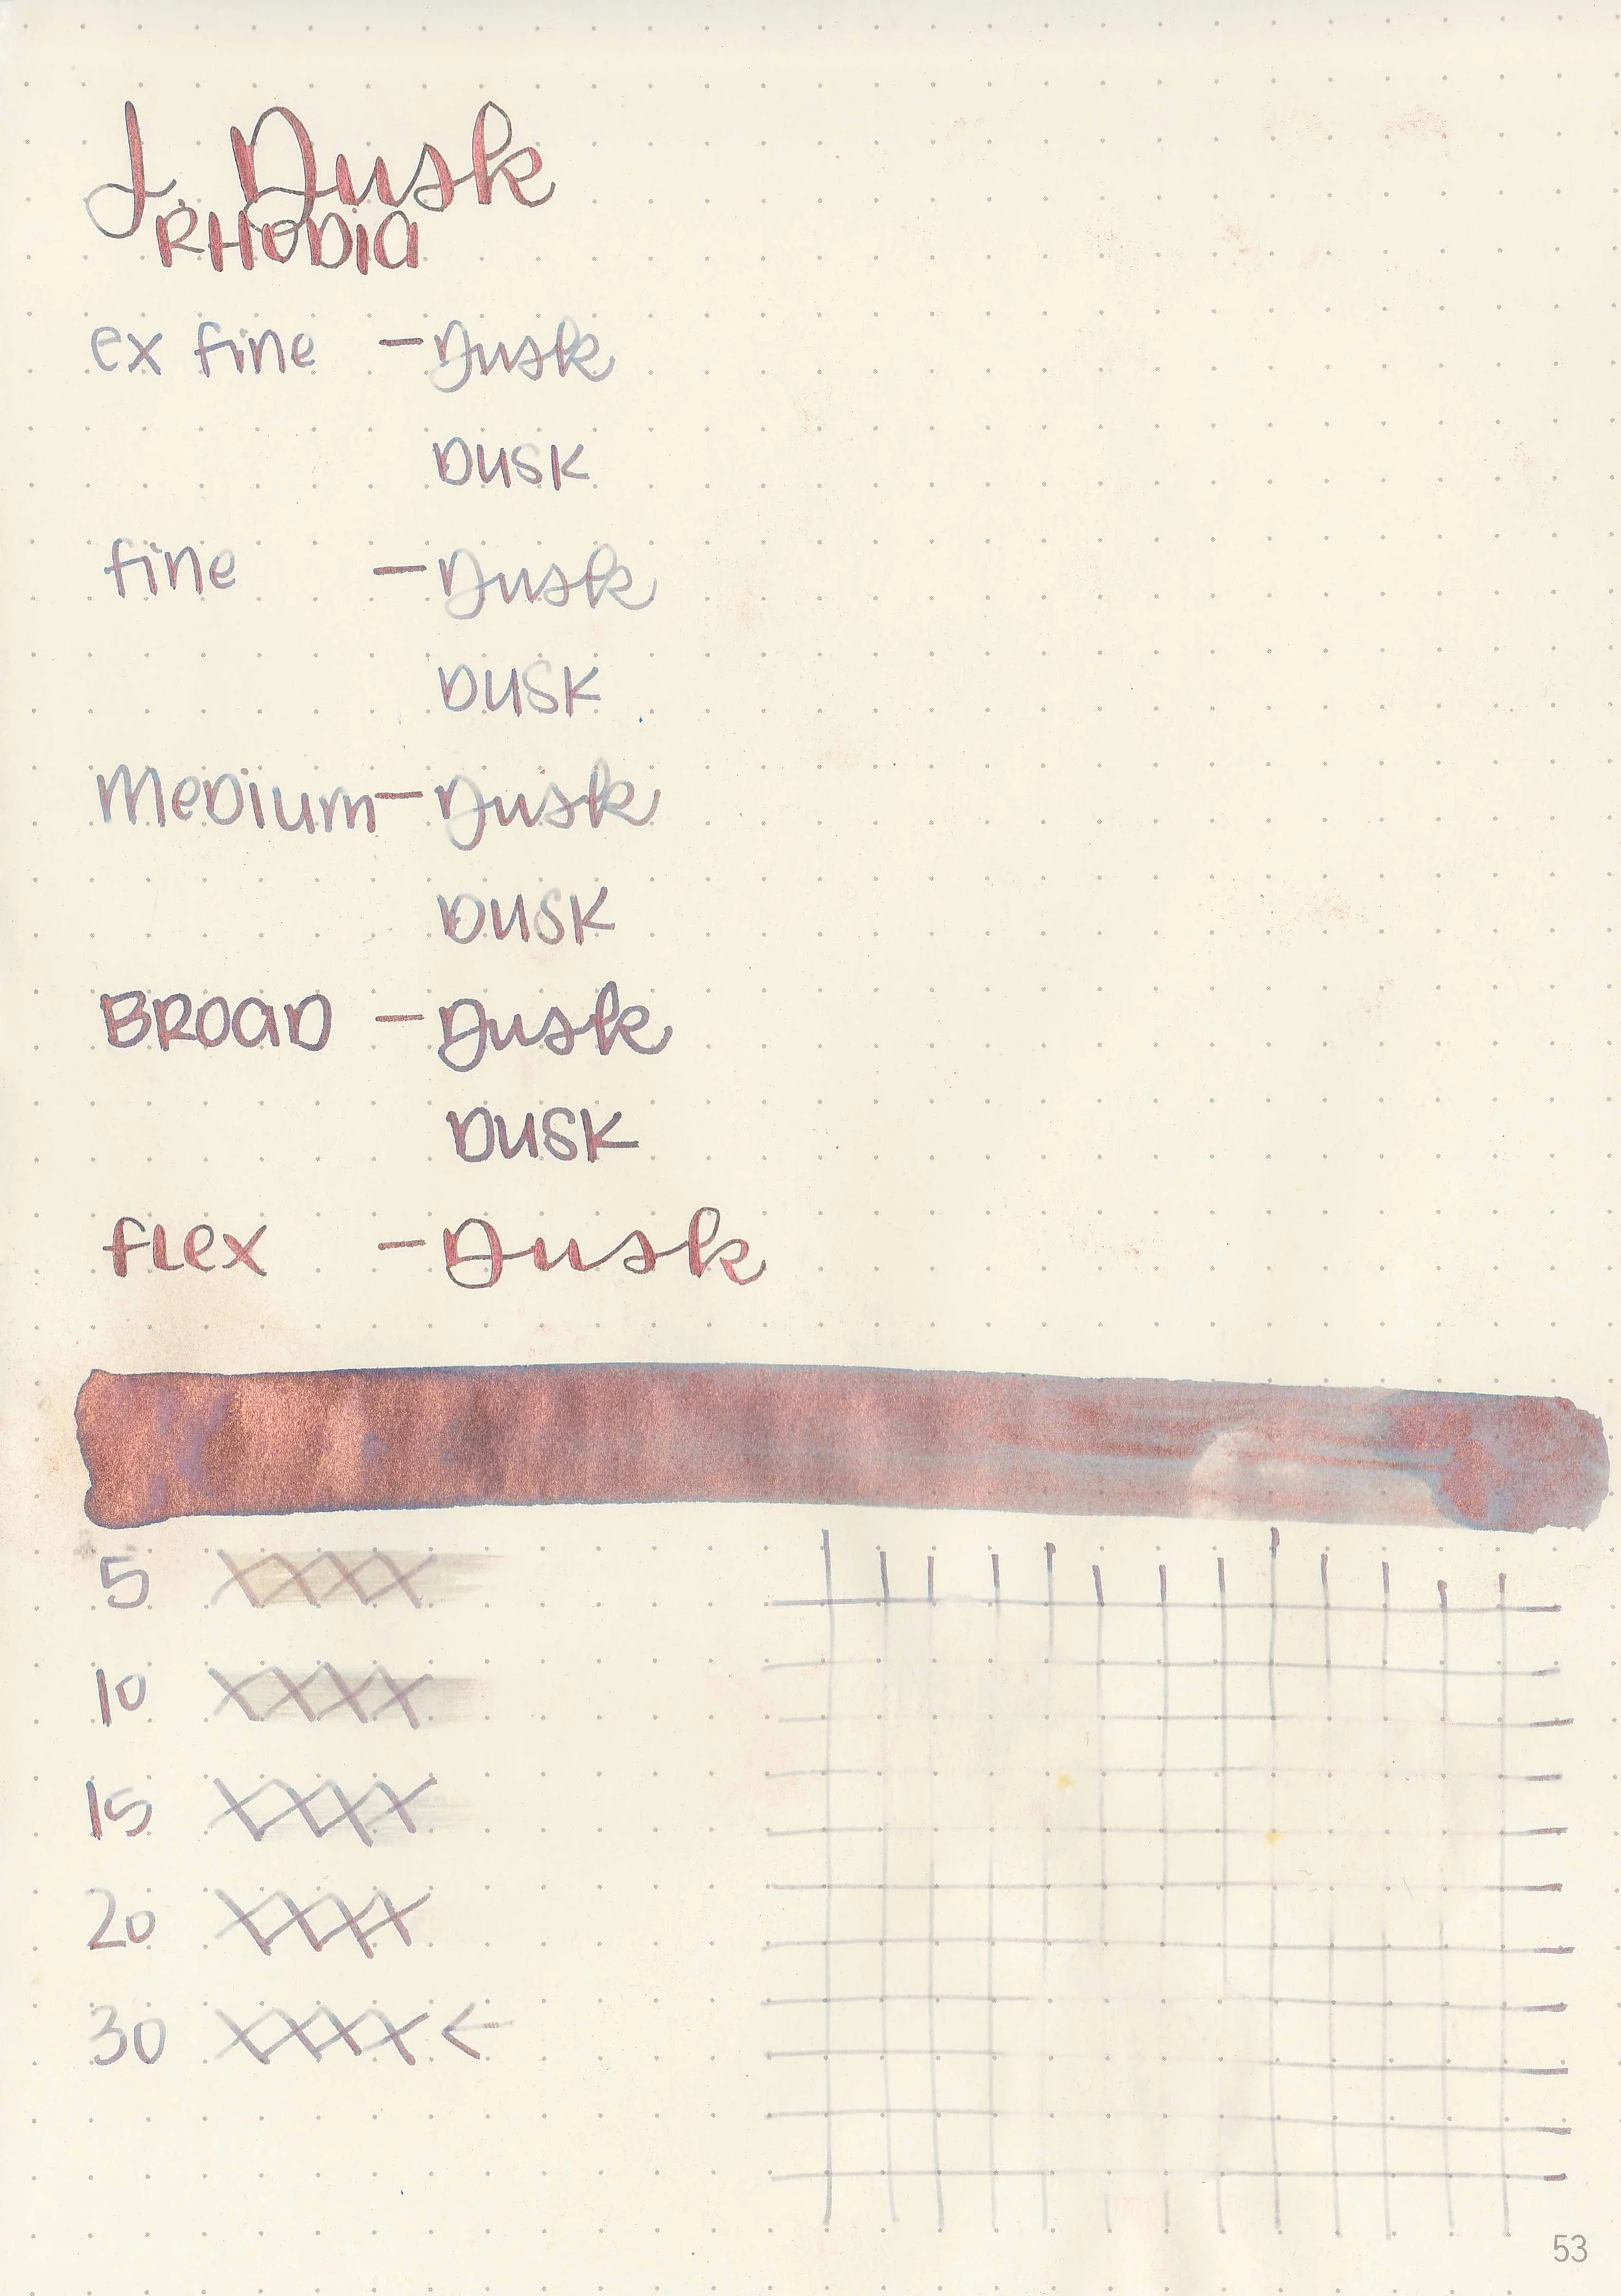 J. Dusk
RHODIA
ex fine - Dusk
DUSK
fine - Dusk
DUSK
Medium - Dusk
DUSK
BROAD - Dusk
DUSK
flex - Dusk
5 XXXX
10 XXXX
15 XXXX
20 XXXX
30 XXXX ←
53